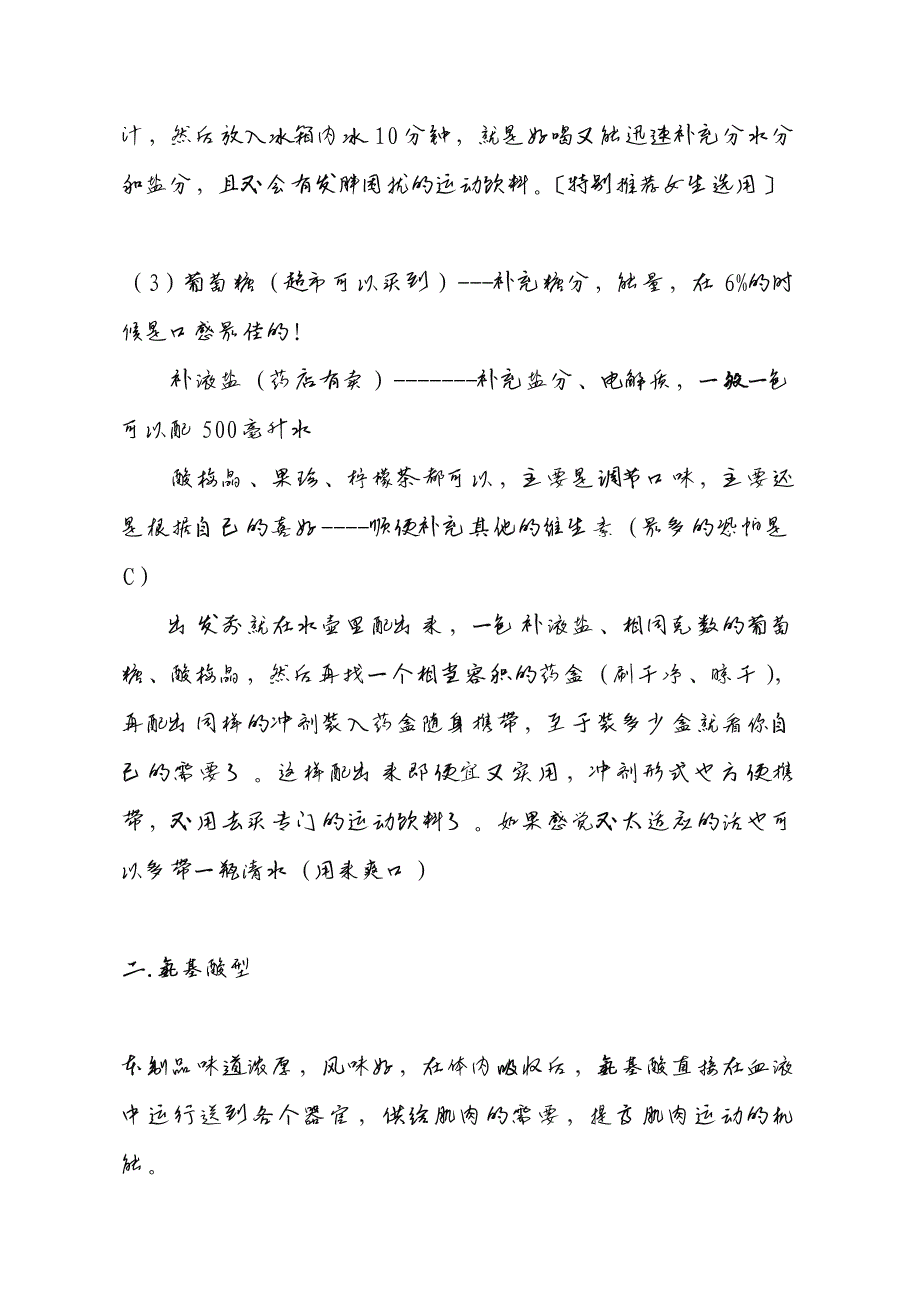 计，然后放入冰箱内冰10分钟，就是好喝又能迅速补充分水分
和盐分，且不会有发胖困扰的运动饮料。〔特别推荐女生选用〕
（3）葡萄糖（超市可以买到）---补充糖分，能量，在 6%的时
候是口感最佳的！
补液盐（药店有卖）-------补充盐分、电解质，一般一包
可以配 500毫升水
酸梅晶、果珍、柠檬茶都可以，主要是调节口味，主要还
是根据自己的喜好----顺便补充其他的维生素（最多的恐怕是
C）
出发前就在水壶里配出来，一包补液盐、相同克数的葡萄
糖、酸梅晶，然后再找一个相当容积的药盒（刷干净、晾干），
再配出同样的冲剂装入药盒随身携带，至于装多少盒就看你自
己的需要了。这样配出来即便宜又实用，冲剂形式也方便携
带，不用去买专门的运动饮料了。如果感觉不太适应的话也可
以多带一瓶清水（用来爽口）
二.氨基酸型
本制品味道浓厚，风味好，在体内吸收后，氨基酸直接在血液
中运行送到各个器官，供给肌肉的需要，提高肌肉运动的机
能。